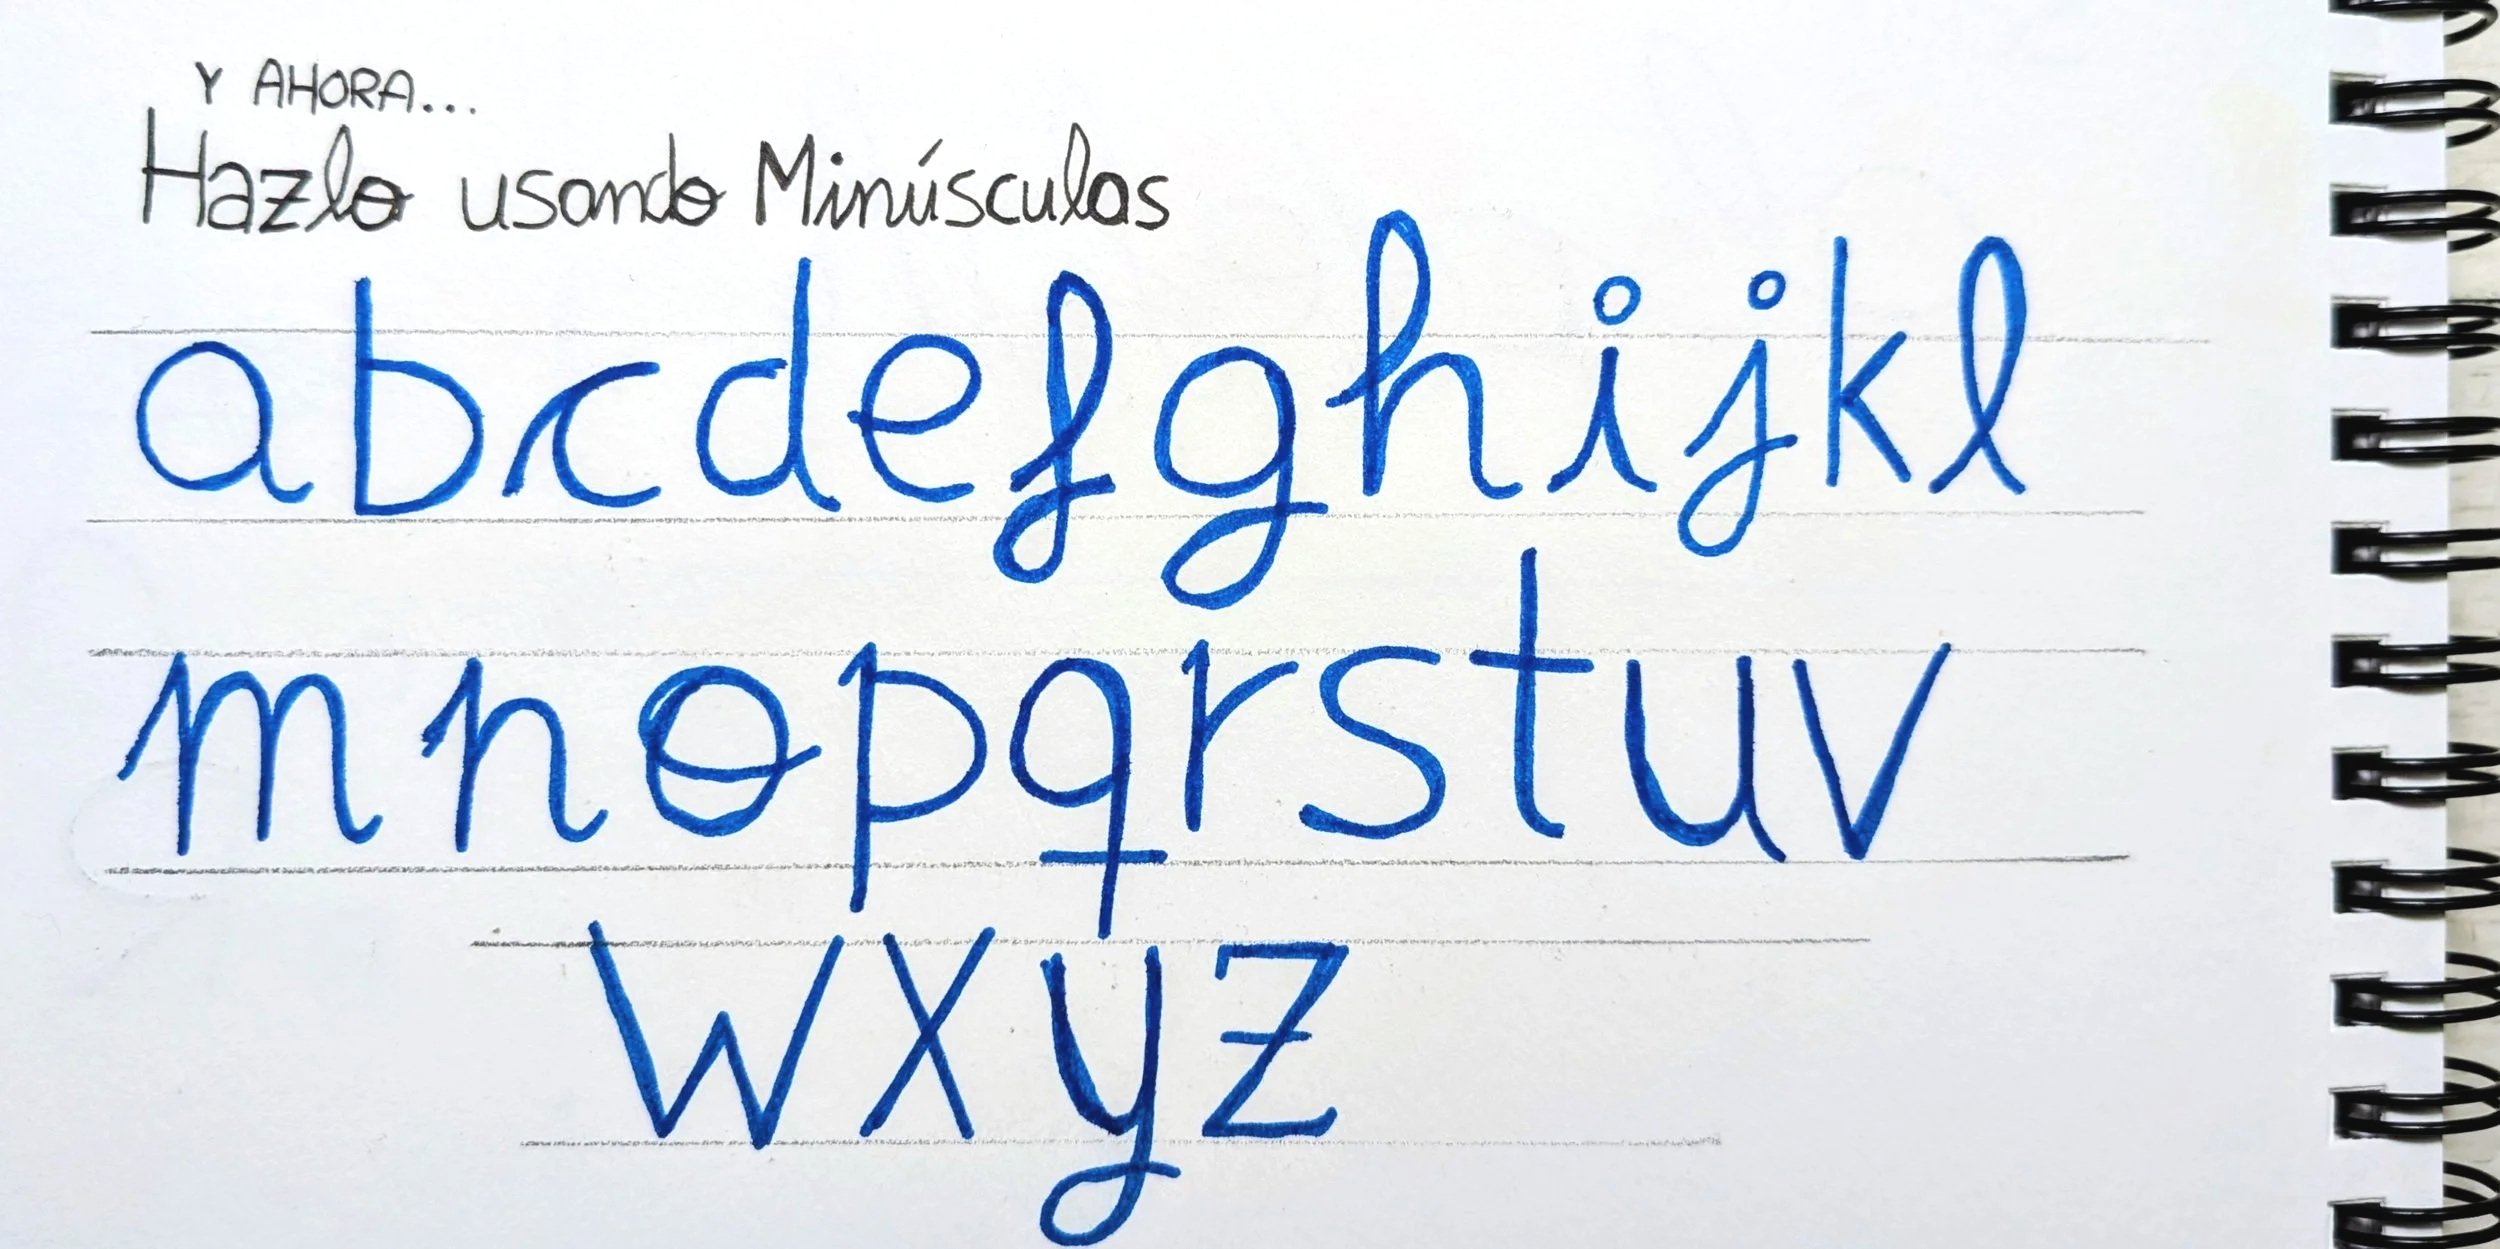 Y AHORA...
Hazlo usando Minúsculas
a b c d e f g h i j k l
m n o p q r s t u v
w x y z